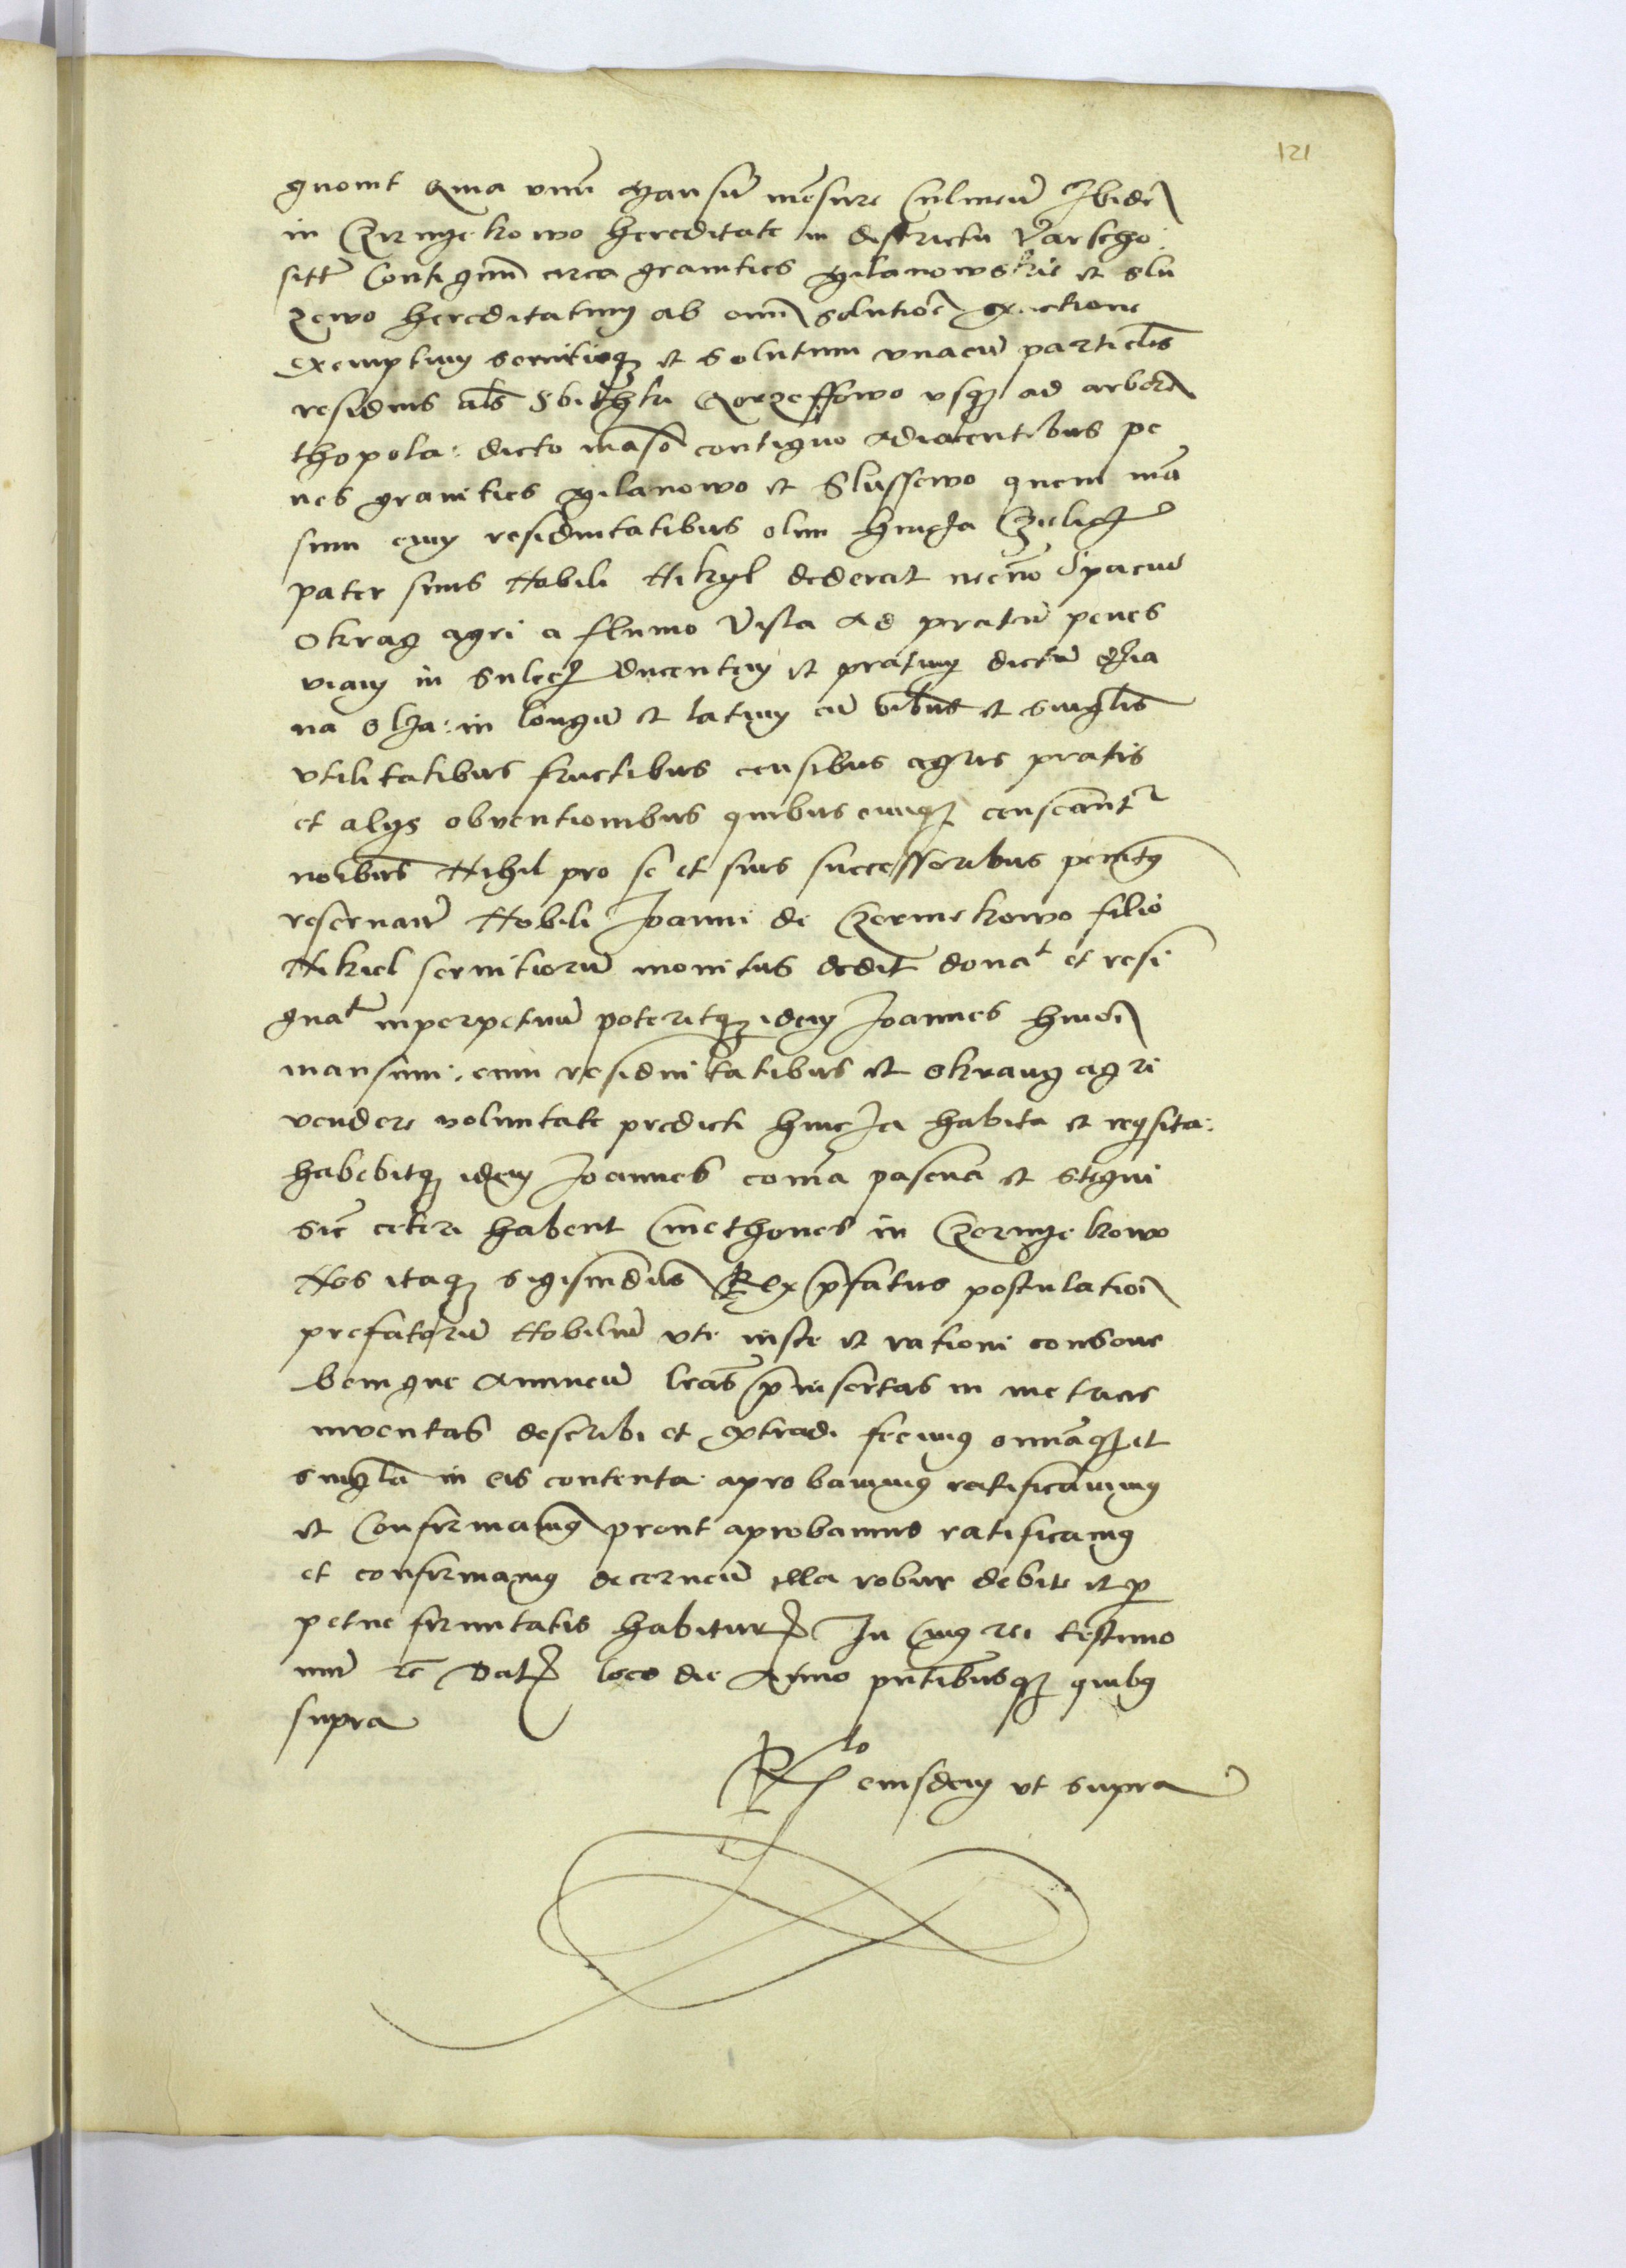 121
gnovit Quia unum Mansum mensure Culmen Ibidem
in Czirnyekowo hereditate in districtu Varscho:
sitt Contiguum circa granities gilanowskie et slu
zewo hereditatum ab omni solutione exactione
exemptum servitiisque et solutum unacum particulis
residuis als usque ad arborem
thopola: dicto manso contiguo Adiacentibus pe
nes granities gilanowo et Slussewo quem man
sum cum residuitatibus olim
pater suus Nobili Nikyl dederat necnon
okrag agri a flumo Visla Ad pratum penes
viam in ducentem et pratum dictum
na in longum et latum cum omnibus et singulis
utilitatibus fructibus censibus agris pratis
et alys obventionibus quibuscunque censeantur
nominibus Nihil pro se et suis successoribus penitus
reservan Nobili Joanni de Czerniekowo filio
Nikiel servitiorum monitus dedit donat et resi
gnat inperpetuum poteritque idem Joannes
mansum: cum residuitatibus et okrang agri
vendere voluntate predicti habita et requisita:
habebitque idem Joannes pascua et
sic ceteri habent Cmethones in Czernyekowo
Nos itaque sigismundus Rex prefatus postulationi
prefatorum Nobilium uti iuste et rationi consone
benigne Annuen literas preinsertas in metricis
inventas describi et extradi fecimus omniaque et
singula in eis contenta aprobavimus ratificavimus
et Confirmavimus prout aprobamus ratificamus
et confirmamus decernen illa robur debite et per
petue firmitatis habitur In Cuius rei testimo
nium etc Dat loco die Anno presentibusque quibus
supra
Rlo eiusdem ut supra